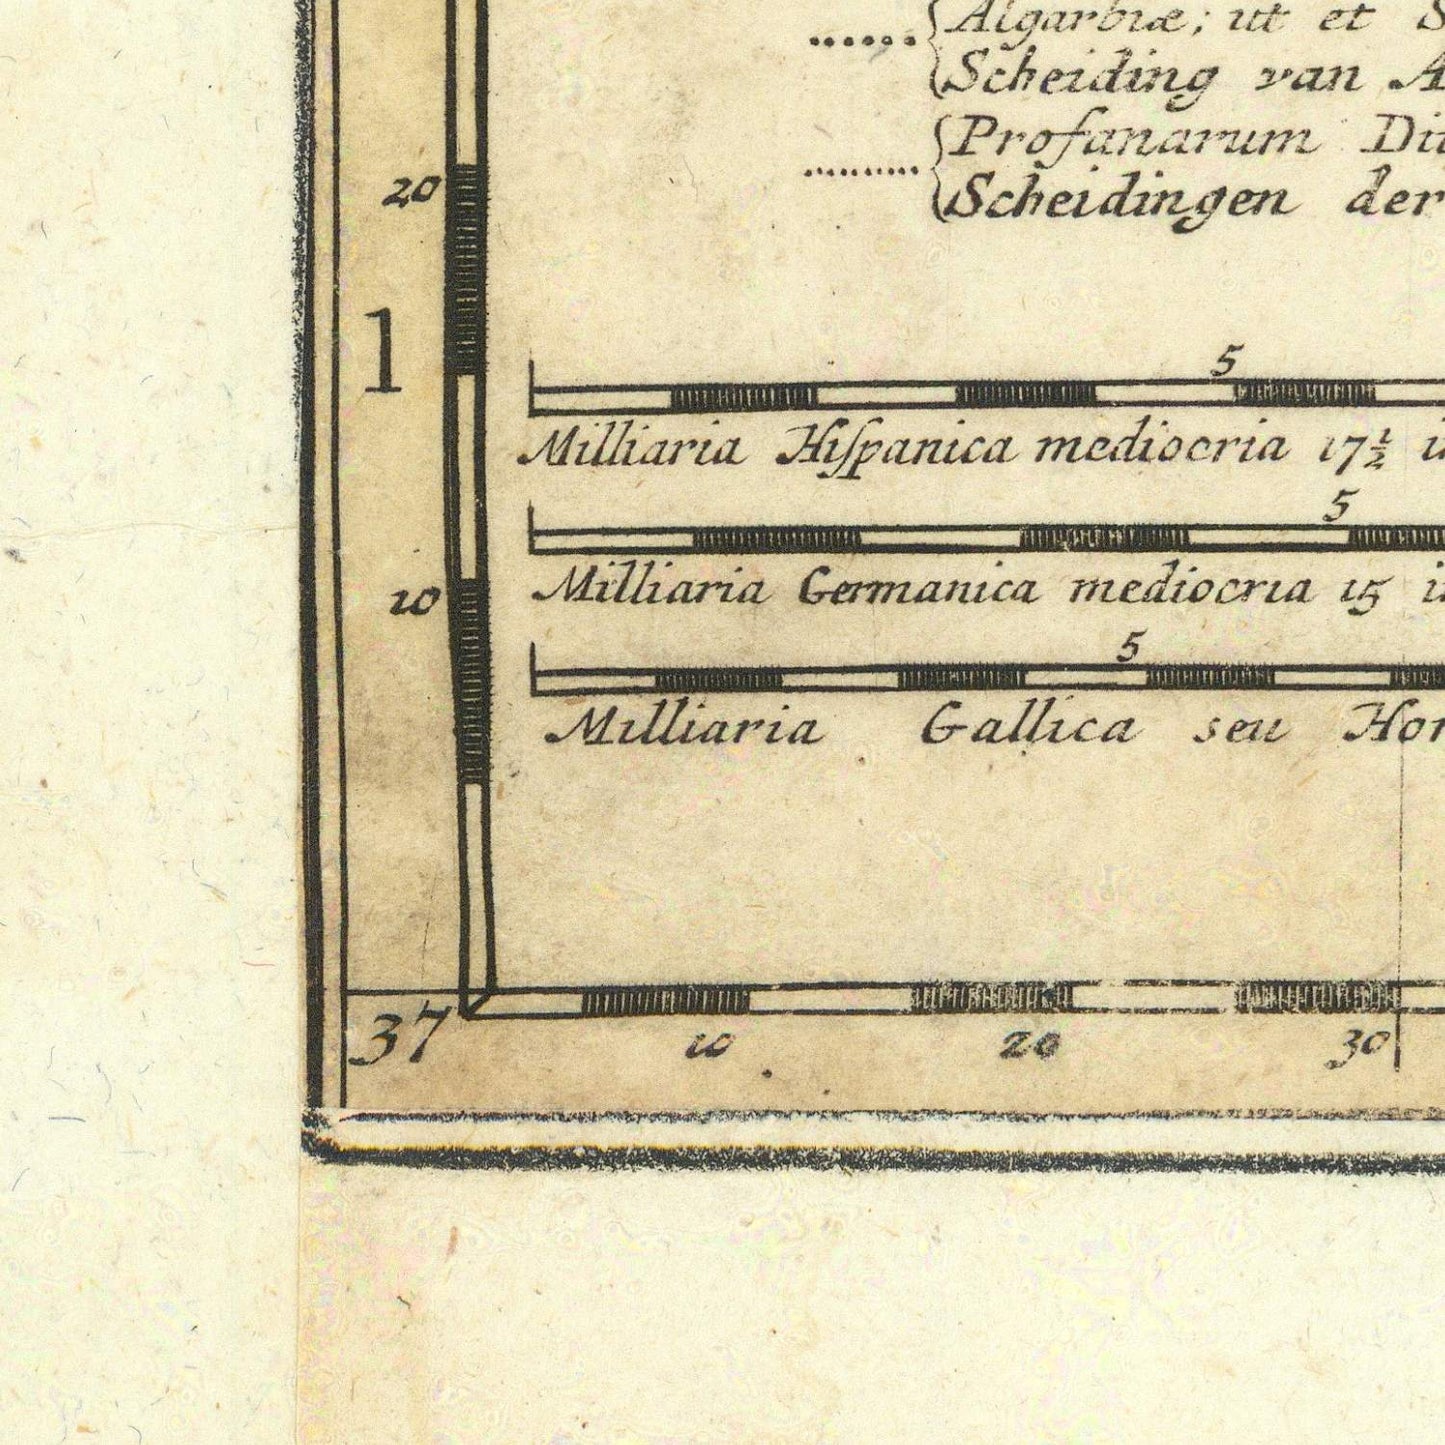 Algarbiæ; ut et
Scheiding van
Profanarum
Scheidingen der
20
1
5
Milliaria Hiſpanica mediocria 17½
5
Milliaria Germanica mediocria 15
10
5
Milliaria Gallica seu
37
10 20 30